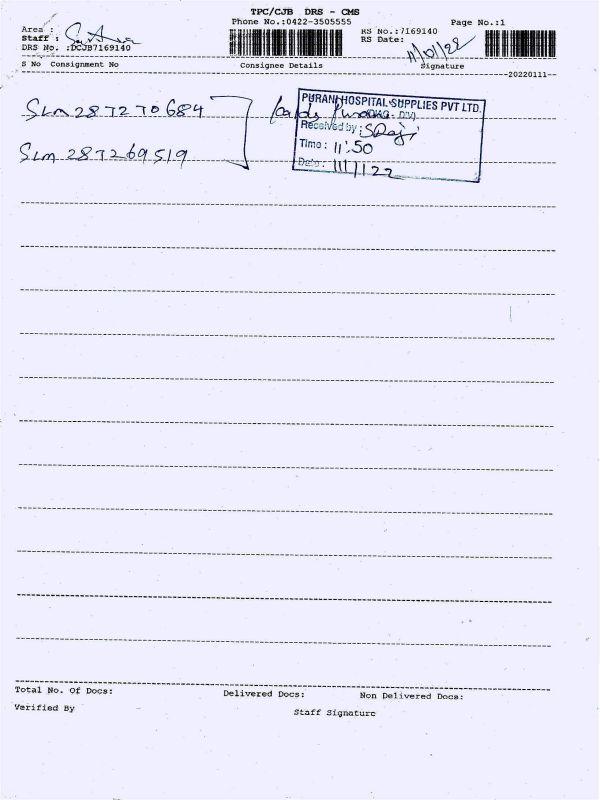 TPC/CJB DRS - CMS
Phone No.:0422-3505555 Page No.:1
Area :
Staff :
DRS No. :DCJB7169140
RS No.:7169140
RS Date: 11/01/22
S No Consignment No Consignee Details Signature
20220111
SLM287270684
SLM 287269519
PURANI HOSPITAL SUPPLIES PVT LTD.
Received by :
Time : 11:50
Date : 11/1/22
Total No. Of Docs: Delivered Docs: Non Delivered Docs:
Verified By Staff Signature